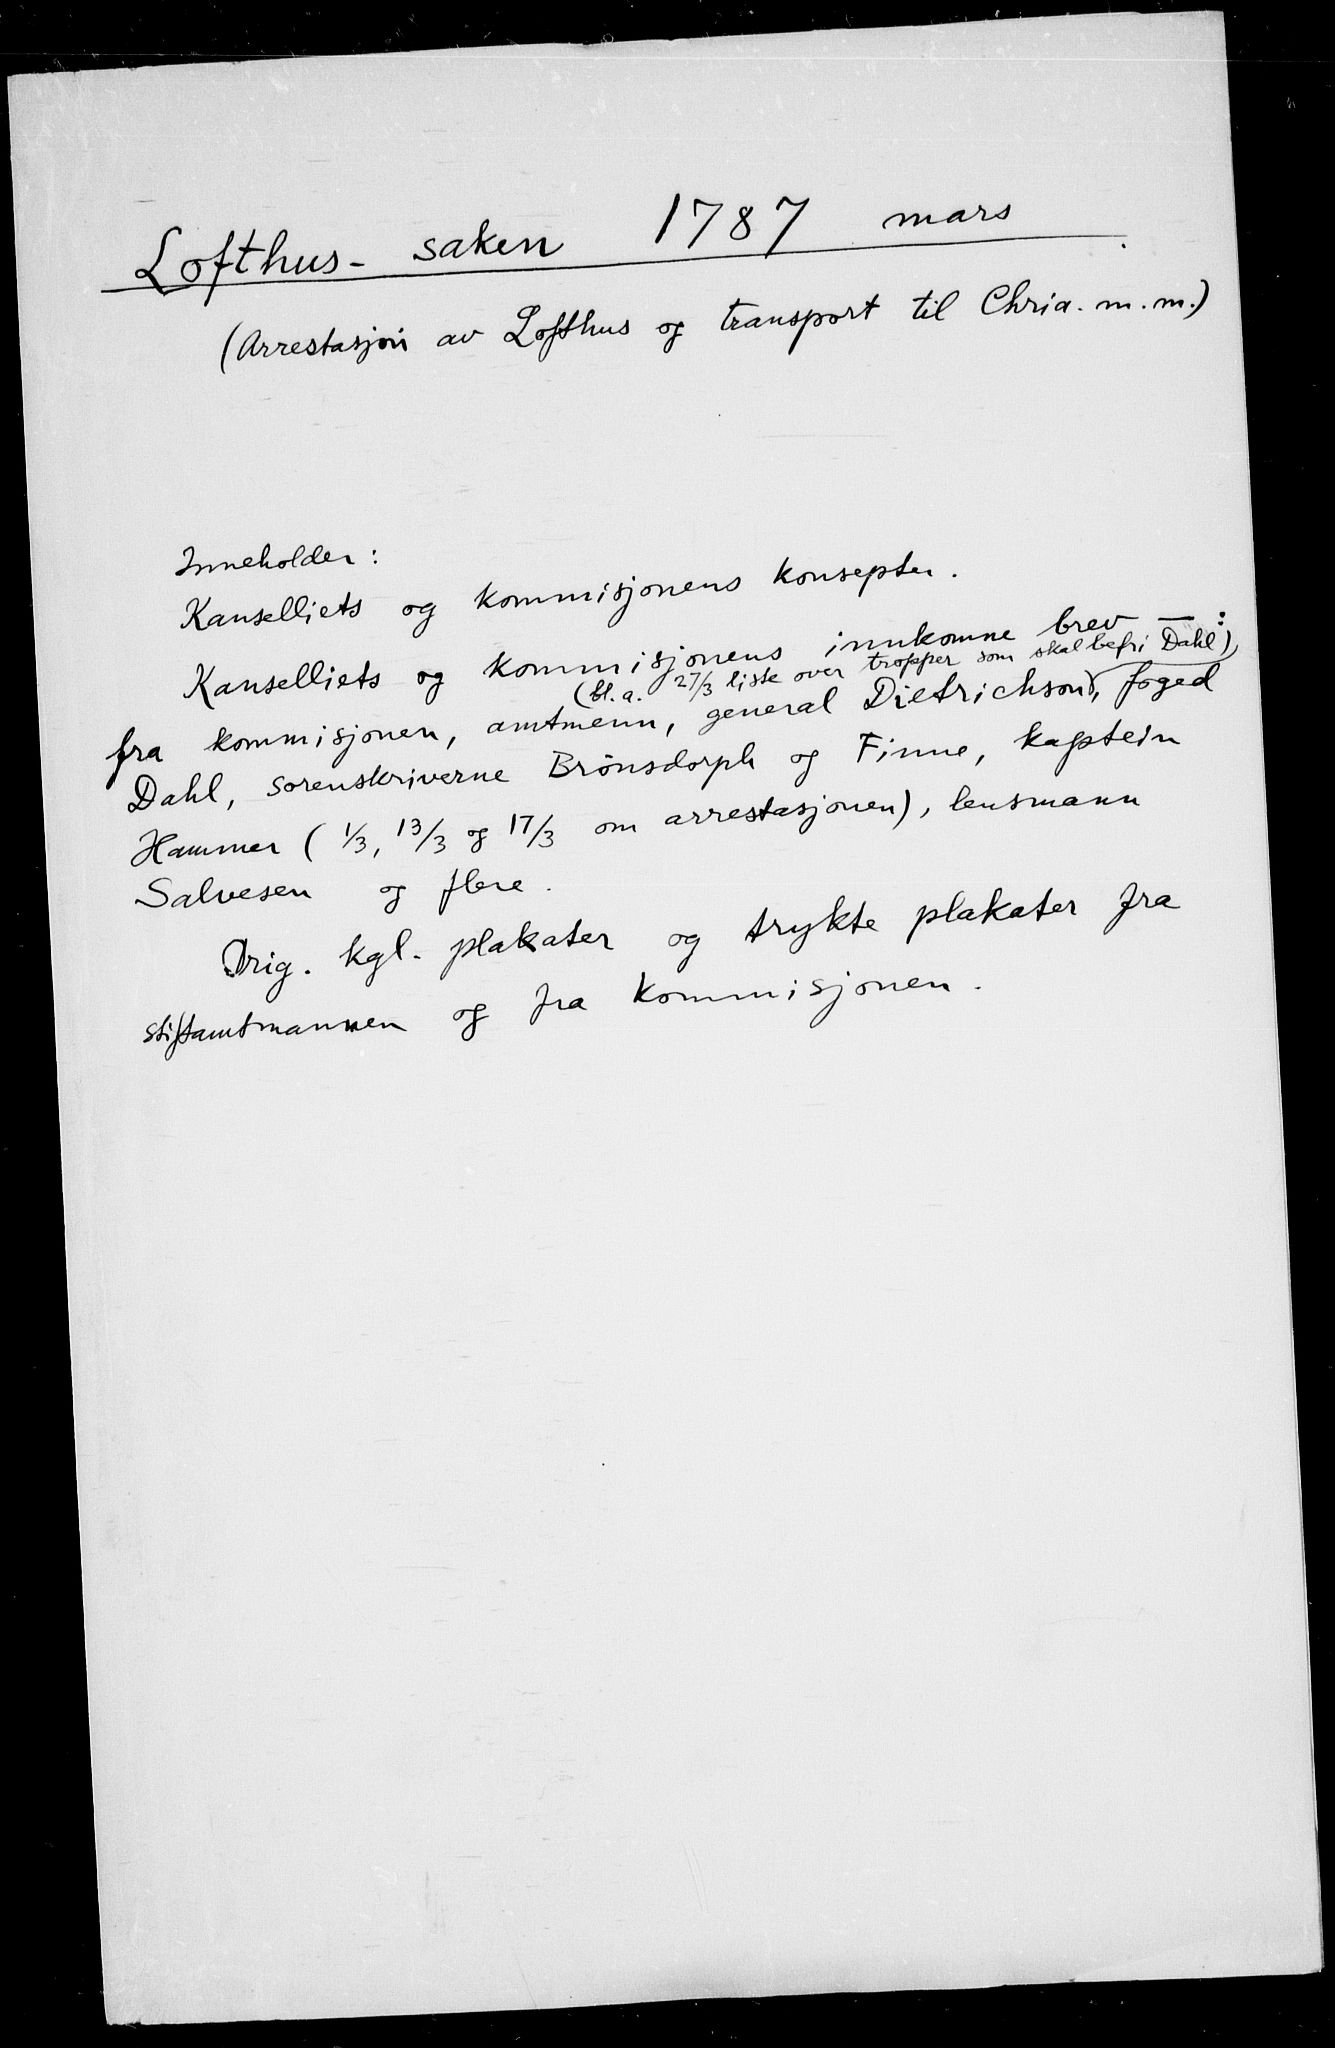 Lofthus-saken 1787 mars
(Arrestasjon av Lofthus og transport til Chria. m.m.)
Inneholder:
Kanselliets og kommisjonens konsepter.
Kanselliets og kommisjonens innkomne brev — :
(bl.a. 27/3 liste over tropper som skal befri Dahl)
fra kommisjonen, amtmenn, general Dietrichson, foged
Dahl, sorenskriverne Brönsdorph og Finne, kaptein
Hammer (1/3, 13/3 og 17/3 om arrestasjonen), lensmann
Salvesen og flere.
Orig. kgl. plakater og trykte plakater fra
stiftamtmannen og fra kommisjonen.